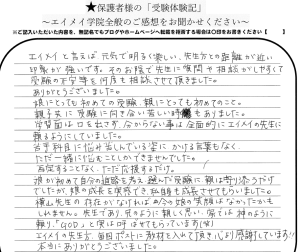 ★保護者様の「受験体験記」
～エイメイ学院全般のご感想をお聞かせください～
※ご記入いただいた内容を、無記名でもブログやホームページへ転載を拒否する場合は○印をお書きください【　】
エイメイと言えば元気で明るく楽しい、先生方との距離が近い
印象が強いです。そのお陰で先生に質問や相談がしやすくて
受験の不安等を何度も相談させて頂きました。
ありがとうございました。
娘にとっても初めての受験、親にとっても初めてのこと。
親子共に受験に向き合い苦しい時期もありました。
学習面は口を出さず、分からない事は全面的にエイメイの先生に
頼るようにしていました。
苦手科目に悩み苦しんでいる姿にかける言葉もなく、
ただ一緒に悩むことしかできませんでした。
否定することなく、ただ応援するだけ。
娘が初めて自分の進路を考え選んだ受験に、親は寄り添うだけ
でしたが、娘の成長を実感でき、私自身も成長させてもらいました。
横山先生の存在がなければ今の娘の笑顔はなかったかも
しれません。先生であり、兄のように親しく思い、家では神のように
頼り、"GOD"と呼ばせてもらっています(笑)
エイメイの先生方、毎回プリントに教材を入れて頂き心より感謝しています!!
本当にありがとうございました。